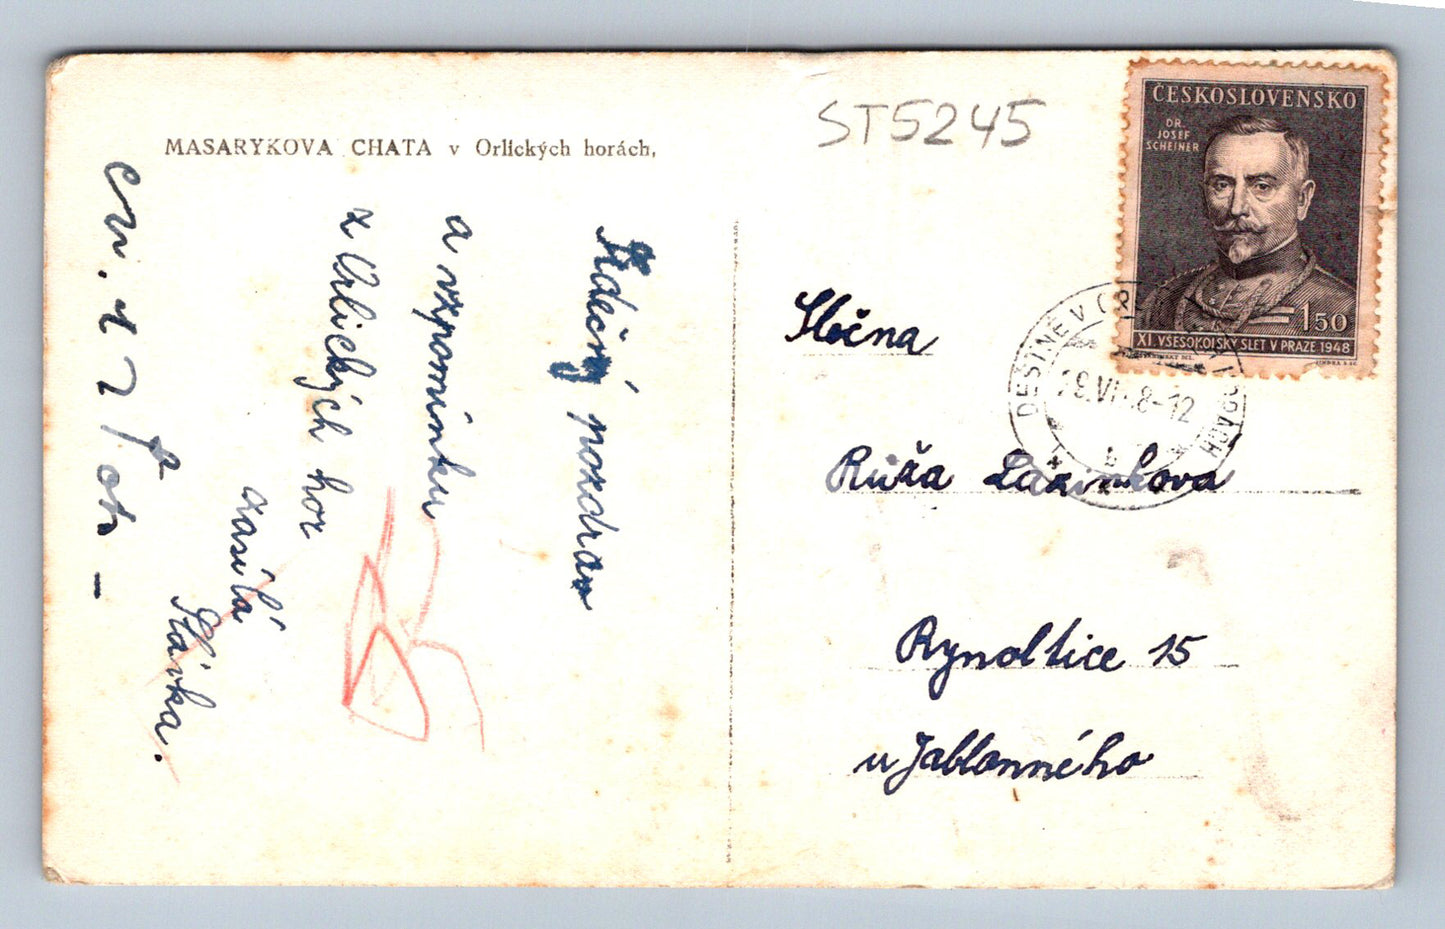 MASARYKOVA CHATA v Orlických horách,
ST5245
ČESKOSLOVENSKO
DR.
JOSEF
SCHEINER
150
XI. VŠESOKOLSKÝ SLET V PRAZE 1948
DEŠTNÉ V ORL HORÁCH
29.VI.48-12
b
Srdečný pozdrav
a vzpomínku
z Orlických hor
zasílá
Slávka.
Slečna
Růža Lazinkova
Rynoltice 15
u Jablonného